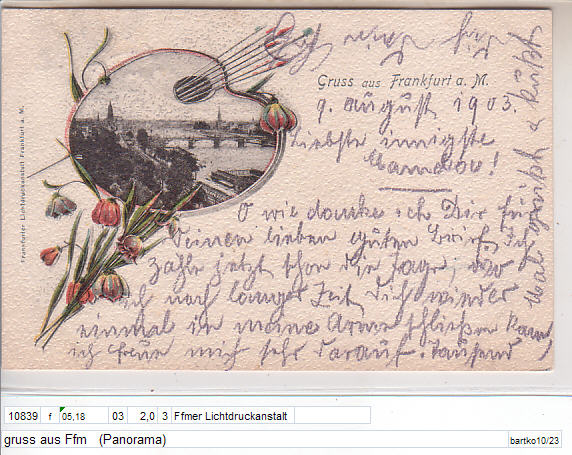 Gruss aus Frankfurt a. M.
9. August 1903.
Liebste innigste
O wie danke ich Dir für
Deinen lieben guten Brief. Ich
zähle jetzt schon die Tage, wo
ich nach langer Zeit Dich wieder
einmal in meine Arme schließen kann,
ich freue mich sehr darauf. Tausend
mal grüßt u küßt
Frankfurter Lichtdruckanstalt Frankfurt a. M.
10839 f 05,18 03 2,0 3 Ffmer Lichtdruckanstalt
gruss aus Ffm (Panorama) bartko10/23